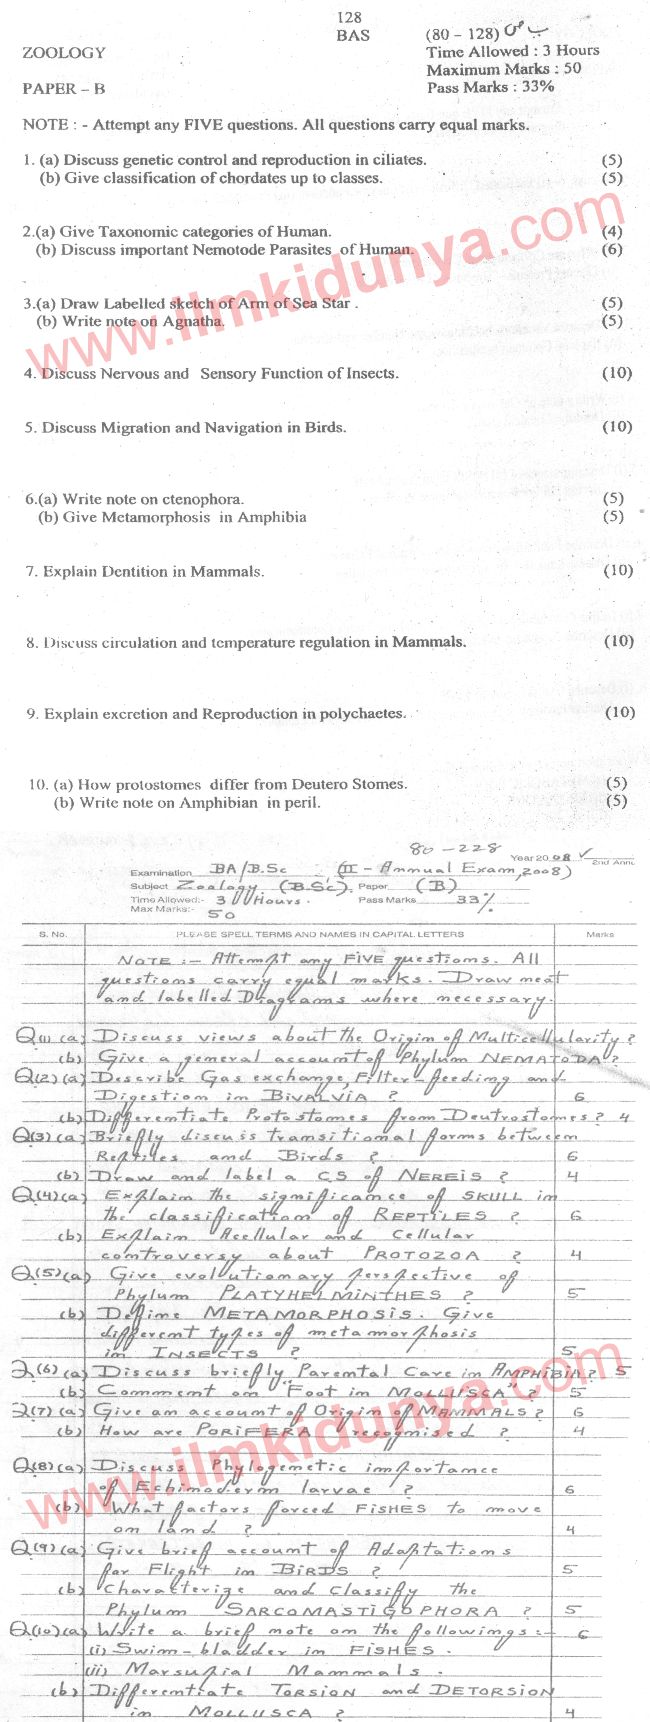 128
BAS
(80 - 128) ب ص
ZOOLOGY
Time Allowed : 3 Hours
Maximum Marks : 50
PAPER – B
Pass Marks : 33%
NOTE : - Attempt any FIVE questions. All questions carry equal marks.
1. (a) Discuss genetic control and reproduction in ciliates. (5)
(b) Give classification of chordates up to classes. (5)
2.(a) Give Taxonomic categories of Human. (4)
(b) Discuss important Nemotode Parasites of Human. (6)
3.(a) Draw Labelled sketch of Arm of Sea Star . (5)
(b) Write note on Agnatha. (5)
4. Discuss Nervous and Sensory Function of Insects. (10)
5. Discuss Migration and Navigation in Birds. (10)
6.(a) Write note on ctenophora. (5)
(b) Give Metamorphosis in Amphibia (5)
7. Explain Dentition in Mammals. (10)
8. Discuss circulation and temperature regulation in Mammals. (10)
9. Explain excretion and Reproduction in polychaetes. (10)
10. (a) How protostomes differ from Deutero Stomes. (5)
(b) Write note on Amphibian in peril. (5)
www.ilmkidunya.com
80 - 228
Year 2008
2nd Annu
Examination BA/B.Sc (II - Annual Exam, 2008)
Subject Zoology (B.Sc). Paper (B)
Time Allowed:- 3 Hours. Pass Marks 33%
Max Marks:- 50
S. No. PLEASE SPELL TERMS AND NAMES IN CAPITAL LETTERS Marks
NOTE :- Attempt any FIVE questions. All
questions carry equal marks. Draw neat
and labelled Diagrams where necessary.
Q(1) (a) Discuss views about the Origin of Multicellularity ?
(b) Give a general account of Phylum NEMATODA ?
Q(2) (a) Describe Gas exchange, Filter-feeding and
Digestion in BIVALVIA ? 6
(b) Differentiate Protostomes from Deutrostomes ? 4
Q(3) (a) Briefly discuss transitional forms between
Reptiles and Birds ? 6
(b) Draw and label a C.S of NEREIS ? 4
Q(4) (a) Explain the significance of SKULL in
the classification of REPTILES ? 6
(b) Explain Acellular and Cellular
controversy about PROTOZOA ? 4
Q(5) (a) Give evolutionary perspective of
Phylum PLATYHELMINTHES ? 5
(b) Define METAMORPHOSIS. Give
different types of metamorphosis
in INSECTS ? 5
Q(6) (a) Discuss briefly Parental Care in AMPHIBIA ? 5
(b) Comment on "Foot in MOLLUSCA" ? 5
Q(7) (a) Give an account of Origin of MAMMALS ? 6
(b) How are PORIFERA recognised ? 4
Q(8) (a) Discuss Phylogenetic importance
of Echinoderm larvae ? 6
(b) What factors forced FISHES to move
on land ? 4
Q(9) (a) Give brief account of Adaptations
for Flight in BIRDS ? 5
(b) Characterize and Classify the
Phylum SARCOMASTIGOPHORA ? 5
Q(10) (a) Write a brief note on the followings :- 6
(i) Swim-bladder in FISHES.
(ii) Marsupial Mammals.
(b) Differentiate TORSION and DETORSION
in MOLLUSCA ? 4
www.ilmkidunya.com